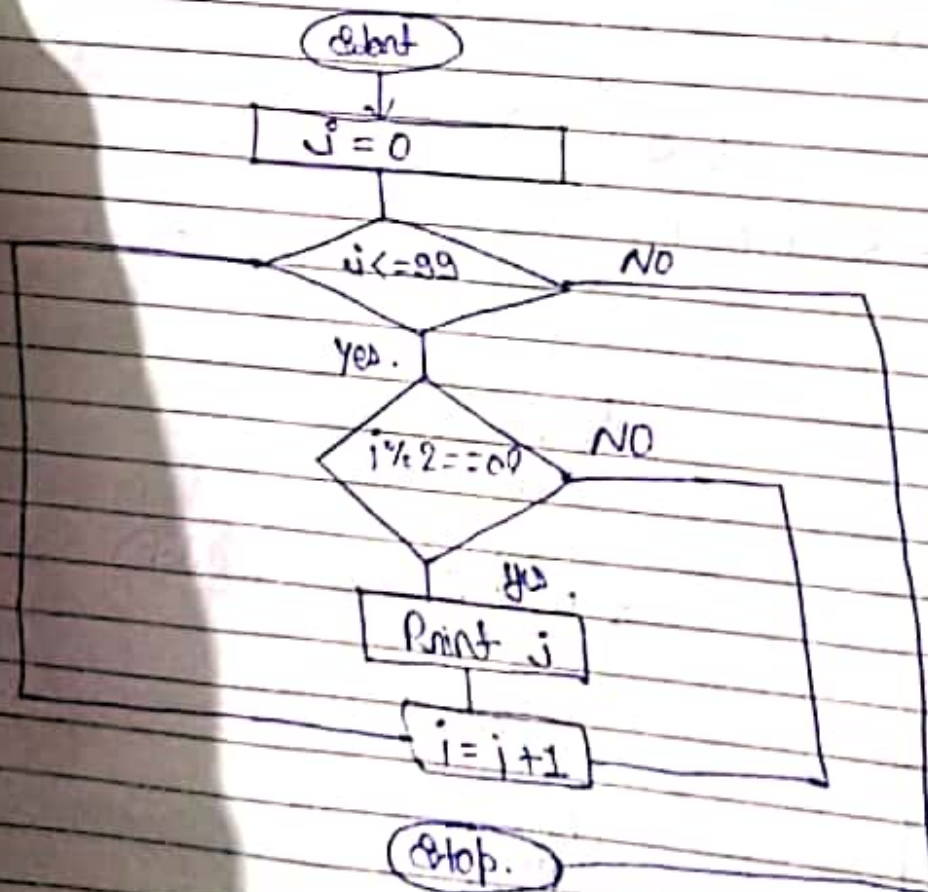 Start
j = 0
j<=99
NO
Yes.
j%2==0?
NO
yes.
Print j
j = j+1
Stop.